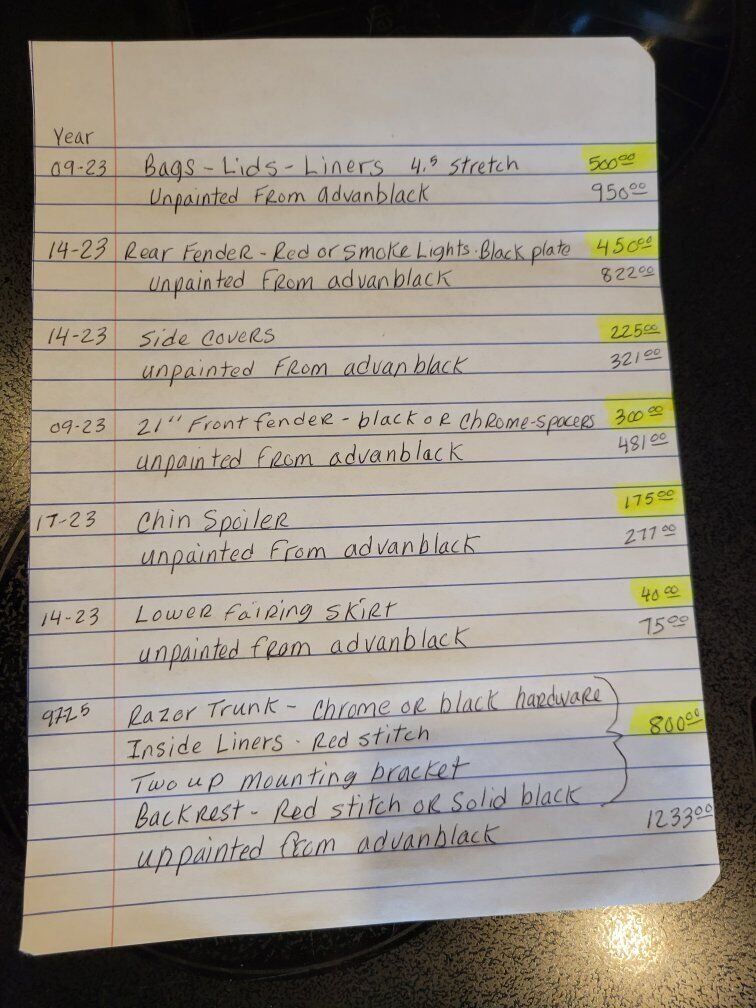 Year
09-23 Bags - Lids - Liners 4.5 stretch 500.00
Unpainted From advanblack 950.00
14-23 Rear Fender - Red or Smoke Lights. Black plate 450.00
unpainted From advanblack 822.00
14-23 Side Covers 225.00
unpainted From advanblack 321.00
09-23 21" Front fender - black or Chrome-spacers 300.00
unpainted from advanblack 481.00
17-23 Chin Spoiler 175.00
unpainted From advanblack 277.00
14-23 Lower Fairing Skirt 40.00
unpainted from advanblack 75.00
Razor Trunk - Chrome or black hardware
Inside Liners - Red stitch 800.00
Two up mounting bracket
Backrest - Red stitch or Solid black
unpainted from advanblack 1233.00